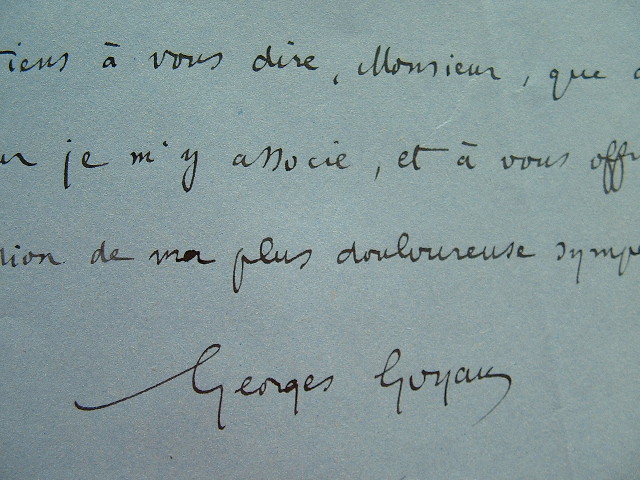 tiens à vous dire, Monsieur, que d
ur je m'y associe, et à vous offri
sion de ma plus douloureuse sympa
Georges Goyau